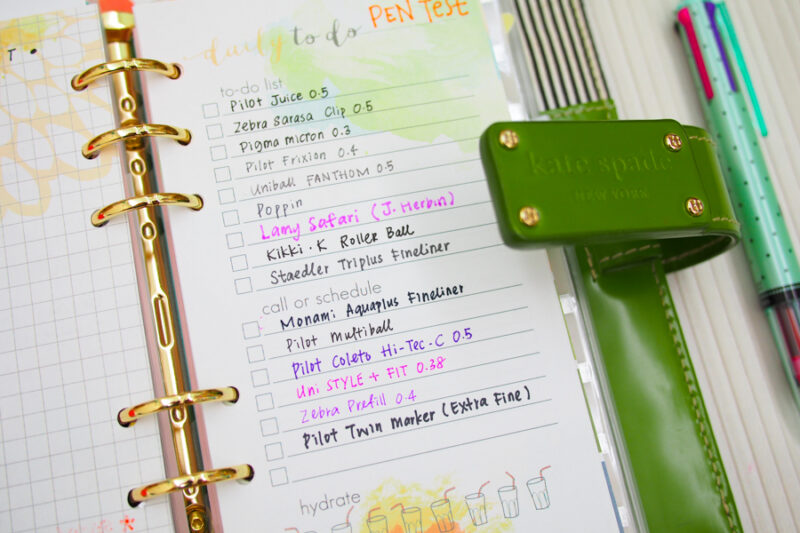 PEN TEST
daily to do
to-do list
Pilot Juice 0.5
Zebra Sarasa Clip 0.5
Pigma micron 0.3
Pilot Frixion 0.4
Uniball FANTHOM 0.5
Poppin
Lamy Safari (J. Herbin)
Kikki.K Roller Ball
Staedler Triplus Fineliner
call or schedule
Monami Aquaplus Fineliner
Pilot Multiball
Pilot Coleto Hi-Tec-C 0.5
Uni STYLE + FIT 0.38
Zebra Prefill 0.4
Pilot Twin Marker (Extra Fine)
hydrate
kate spade
NEW YORK